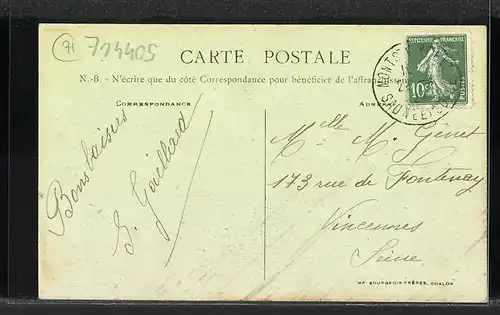 71
714405
CARTE POSTALE
N.-B. - N'écrire que du côté Correspondance pour bénéficier de l'affranchissement
CORRESPONDANCE
Bons baisers
S. Gaillard
Melle M. Génet
173 rue de Fontenay
Vincennes
Seine
FRANÇAISE
10c
POSTES
SAONE ET
IMP. BOURGEOIS FRÈRES, CHALON